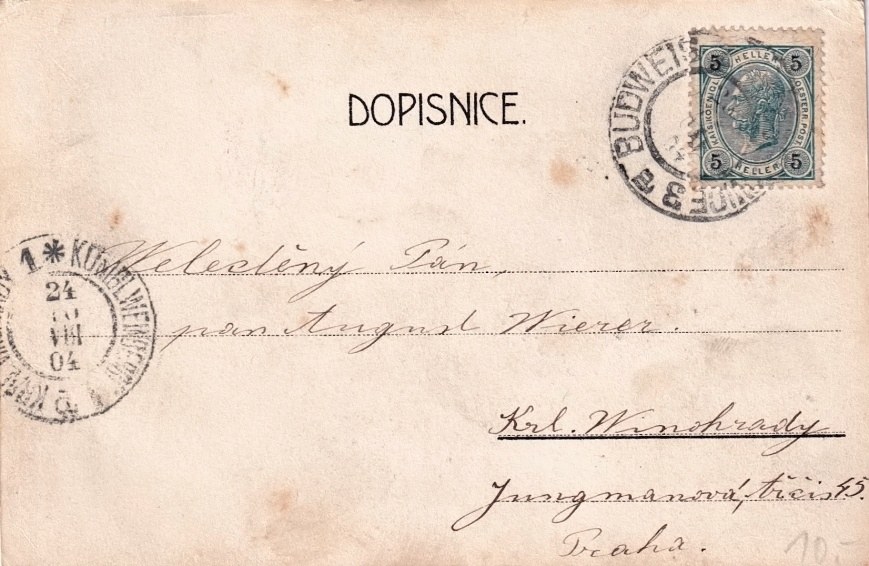 DOPISNICE.
BUDWEIS
3
5 HELLER 5
KAIS. KOENIGL. OESTERR. POST
5 HELLER 5
1 * KÖNIGL. WEINBERGE
24
VIII
04
Veledény Pán,
pan August Wierer.
Krl. Winohrady
Jungmanová, tř. čis 45.
Praha.
10,-